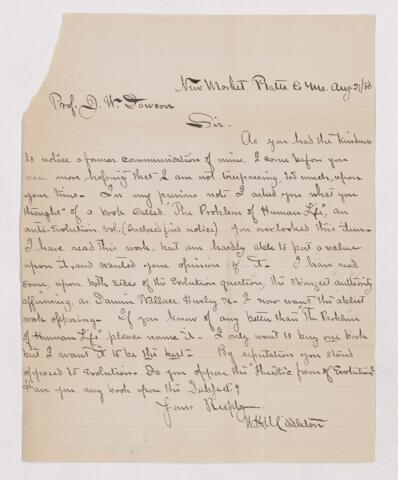 New Market, Platte Co Mo. Aug. 21/80
Prof. J. W. Dawson
Sir.
As you had the kindness
to notice a former communication of mine, I come before you
once more hoping that I am not trespassing too much, upon
your time. In my previous note I asked you what you
thought of a book called "The Problem of Human Life", an
anti-Evolution vol. (enclosed find notice) you overlooked this item.
I have read this work, but am hardly able to put a value
upon it, and wanted your opinion of it. I have read
some, upon both sides of the Evolution question, the strongest authority
affirming, as Darwin Wallace Huxley &c. I now want the ablest
work opposing. If you know of any better than "The Problem
of Human Life" please name it. I only want to buy one book
but I want it to be the best. By reputation you stand
opposed to Evolution. Do you oppose the "theistic form of Evolution"?
Have you any book upon the Subject?
Yours Respty
W. H. Middleton